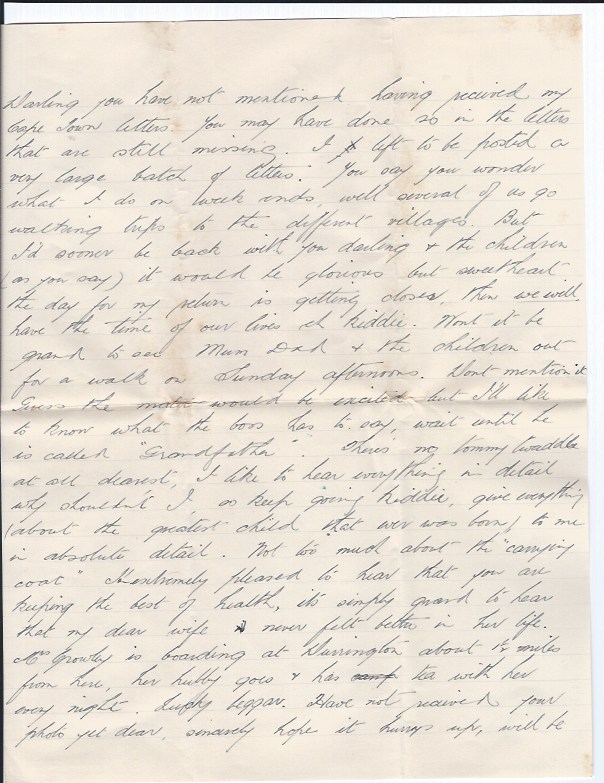 Darling you have not mentioned having recieved my
Cape Town letters. You may have done so in the letters
that are still missing. I left to be posted a
very large batch of letters. You say you wonder
what I do on week ends, well several of us go
walking trips to the different villages. But
I'd sooner be back with you darling & the children
(as you say) it would be glorious but sweetheart
the day for my return is getting closer, then we will
have the time of our lives eh Kiddie. Wont it be
grand to see Mum Dad & the children out
for a walk on Sunday afternoons. Dont mention it
Guess the mater would be excited but I'll like
to know what the boss has to say, wait until he
is called "Grandfather". There's no tommy twaddle
at all dearest, I like to hear everything in detail
why shouldn't I, so keep going Kiddie, give everything
(about the greatest child that ever was born) to me
in absolute detail. Not too much about the "carrying
coat" I'm extremely pleased to hear that you are
keeping the best of health, its simply grand to hear
that my dear wife never felt better in her life.
Mrs Growby is boarding at Durrington about 1½ miles
from here, her hubby goes & has tea with her
every night. Lucky beggar. Have not recieved your
photo yet dear, sincerely hope it hurrys up, will be